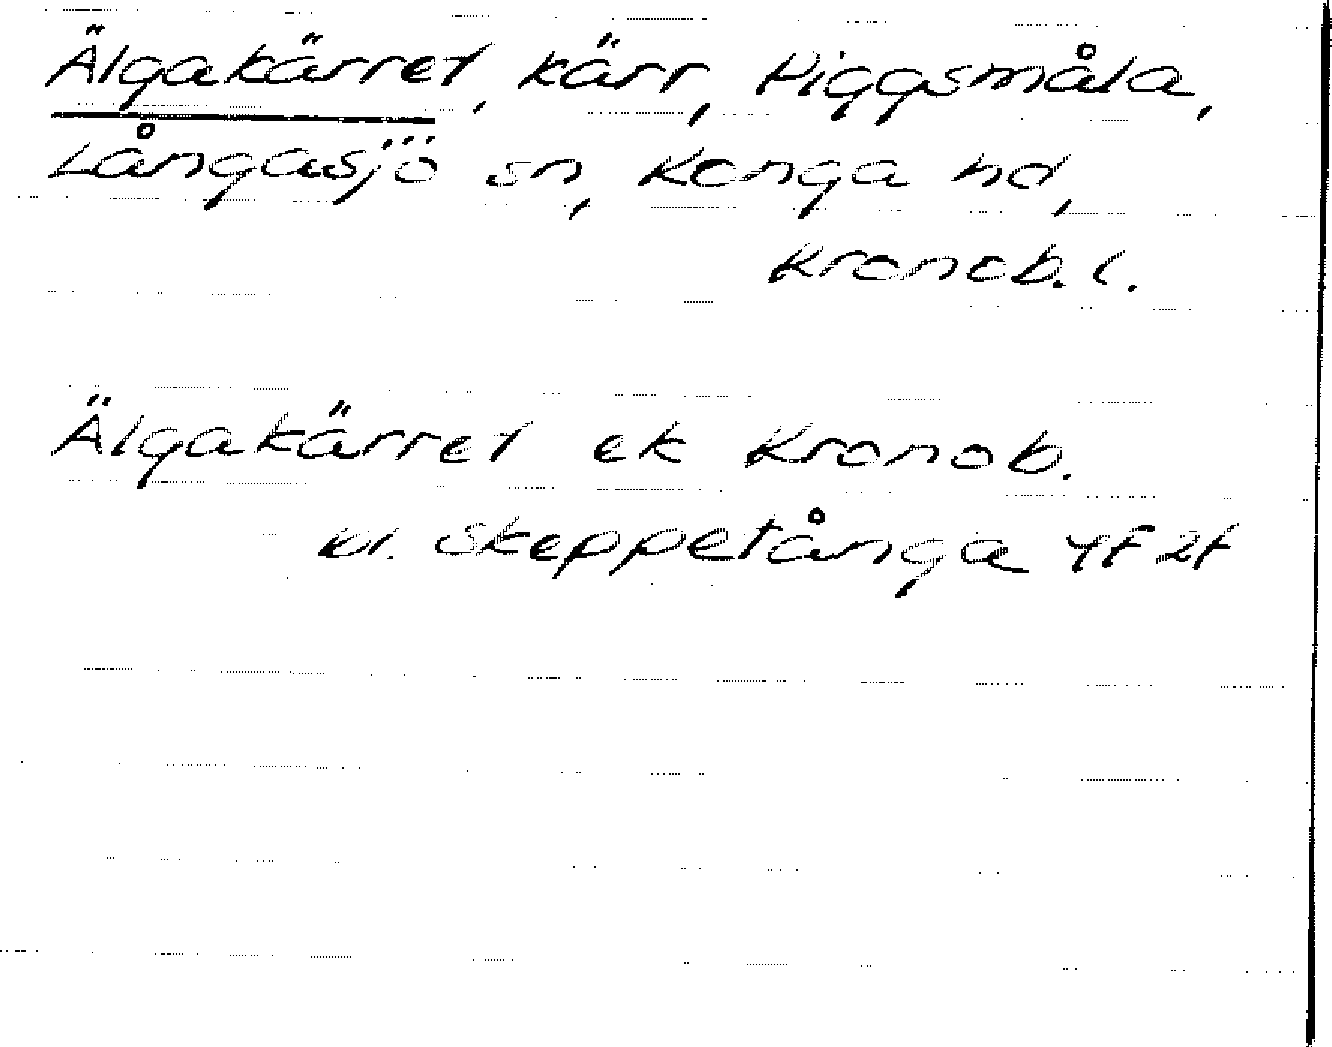 Älgakärret, kärr, Piggsmåla,
Långasjö sn, Konga hd,
Kronob. l.
Älgakärret ek Kronob.
kv. Skeppetånga 4f 2f